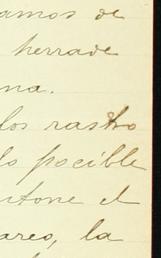 amos de
herrade
na.
los rastro
lo pocible
ntone el
areo, la